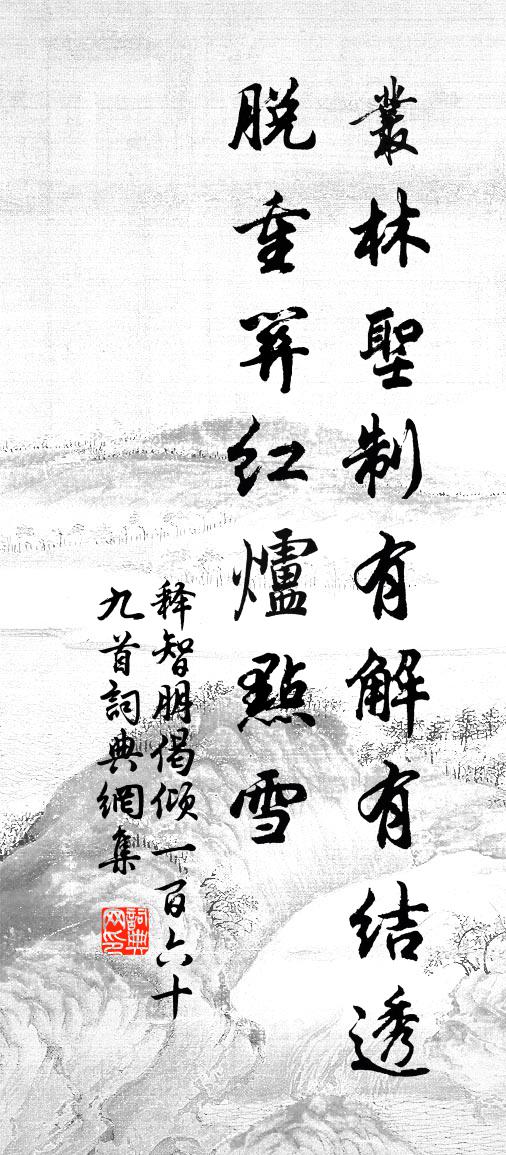 叢林聖制有解有結透
脱重關紅爐點雪
释智朋偈倾一百六十
九首詞典網集
詞典网印